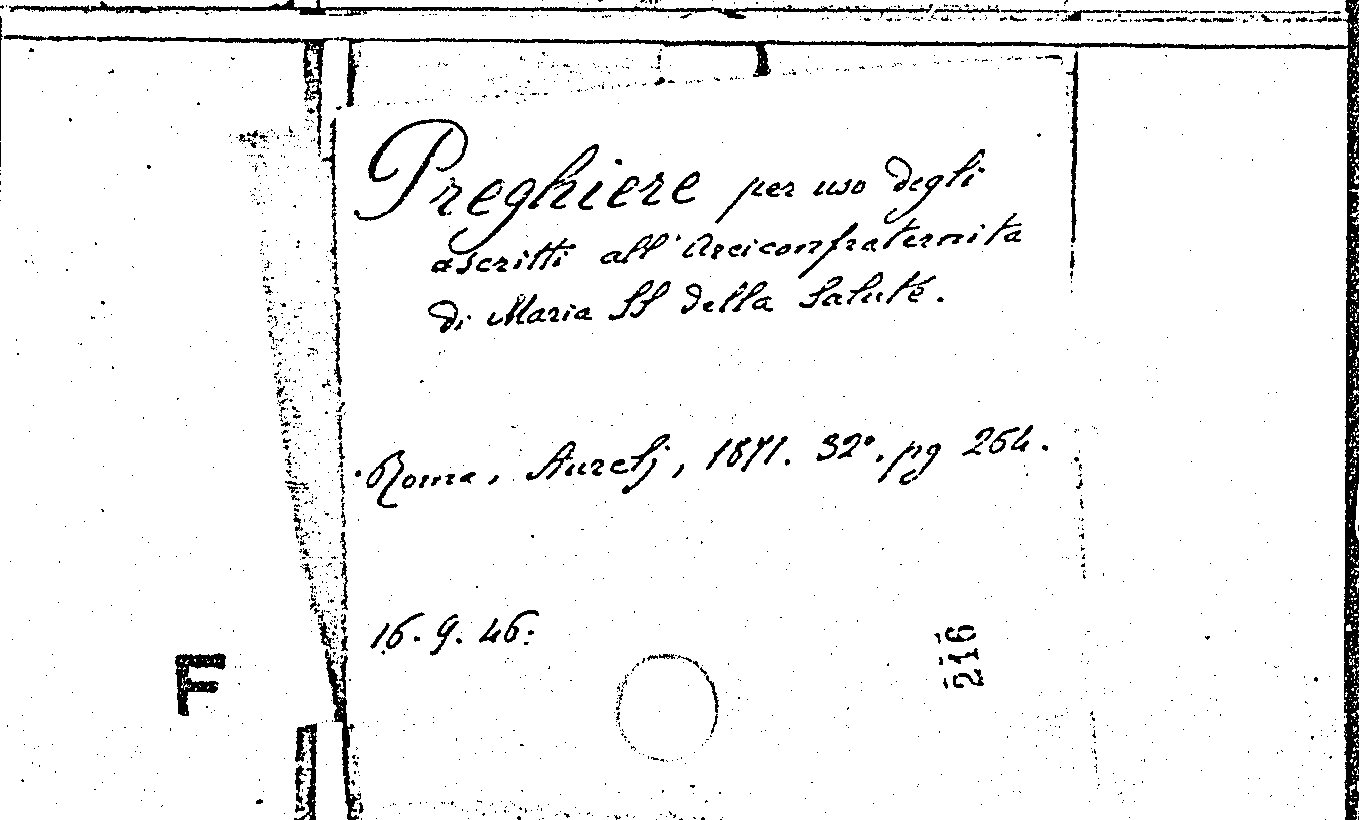 Preghiere per uso degli
ascritti all'Arciconfraternita
di Maria SS della Salute.
Roma, Aurelj, 1871. 32°. pg 264.
16. 9. 46:
216
F